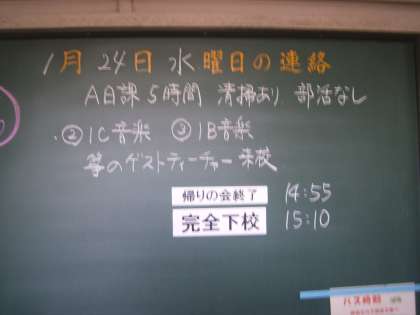 1月24日 水曜日の連絡
A日課 5時間 清掃あり 部活なし
② 1C音楽 ③ 1B音楽
箏のゲストティーチャー 来校
帰りの会終了 14:55
完全下校 15:10
バス時刻